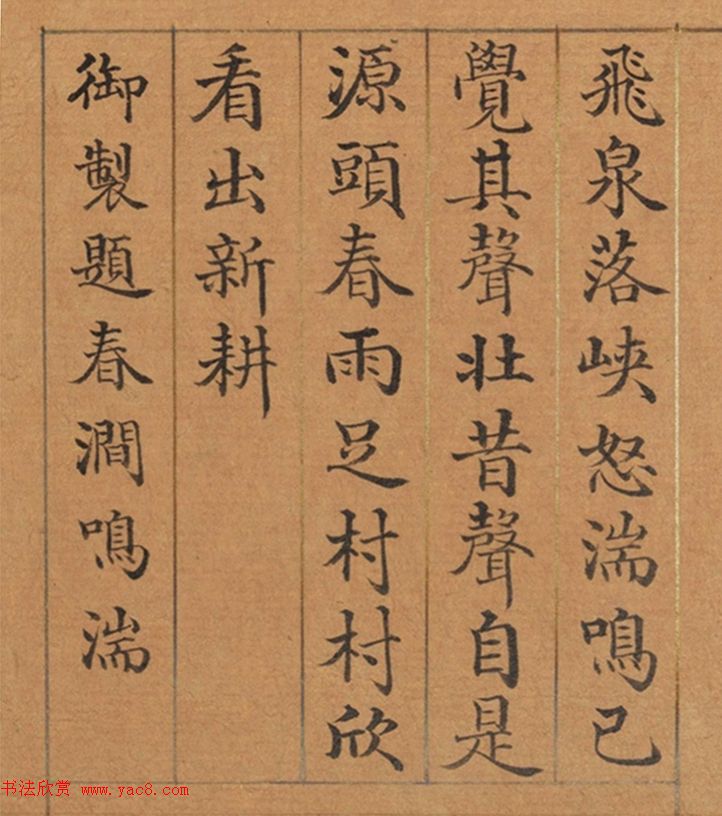 飛泉落峽怒湍鳴已
覺其聲壯昔聲自是
源頭春雨足村村欣
看出新耕
御製題春澗鳴湍
书法欣赏 www.yac8.com